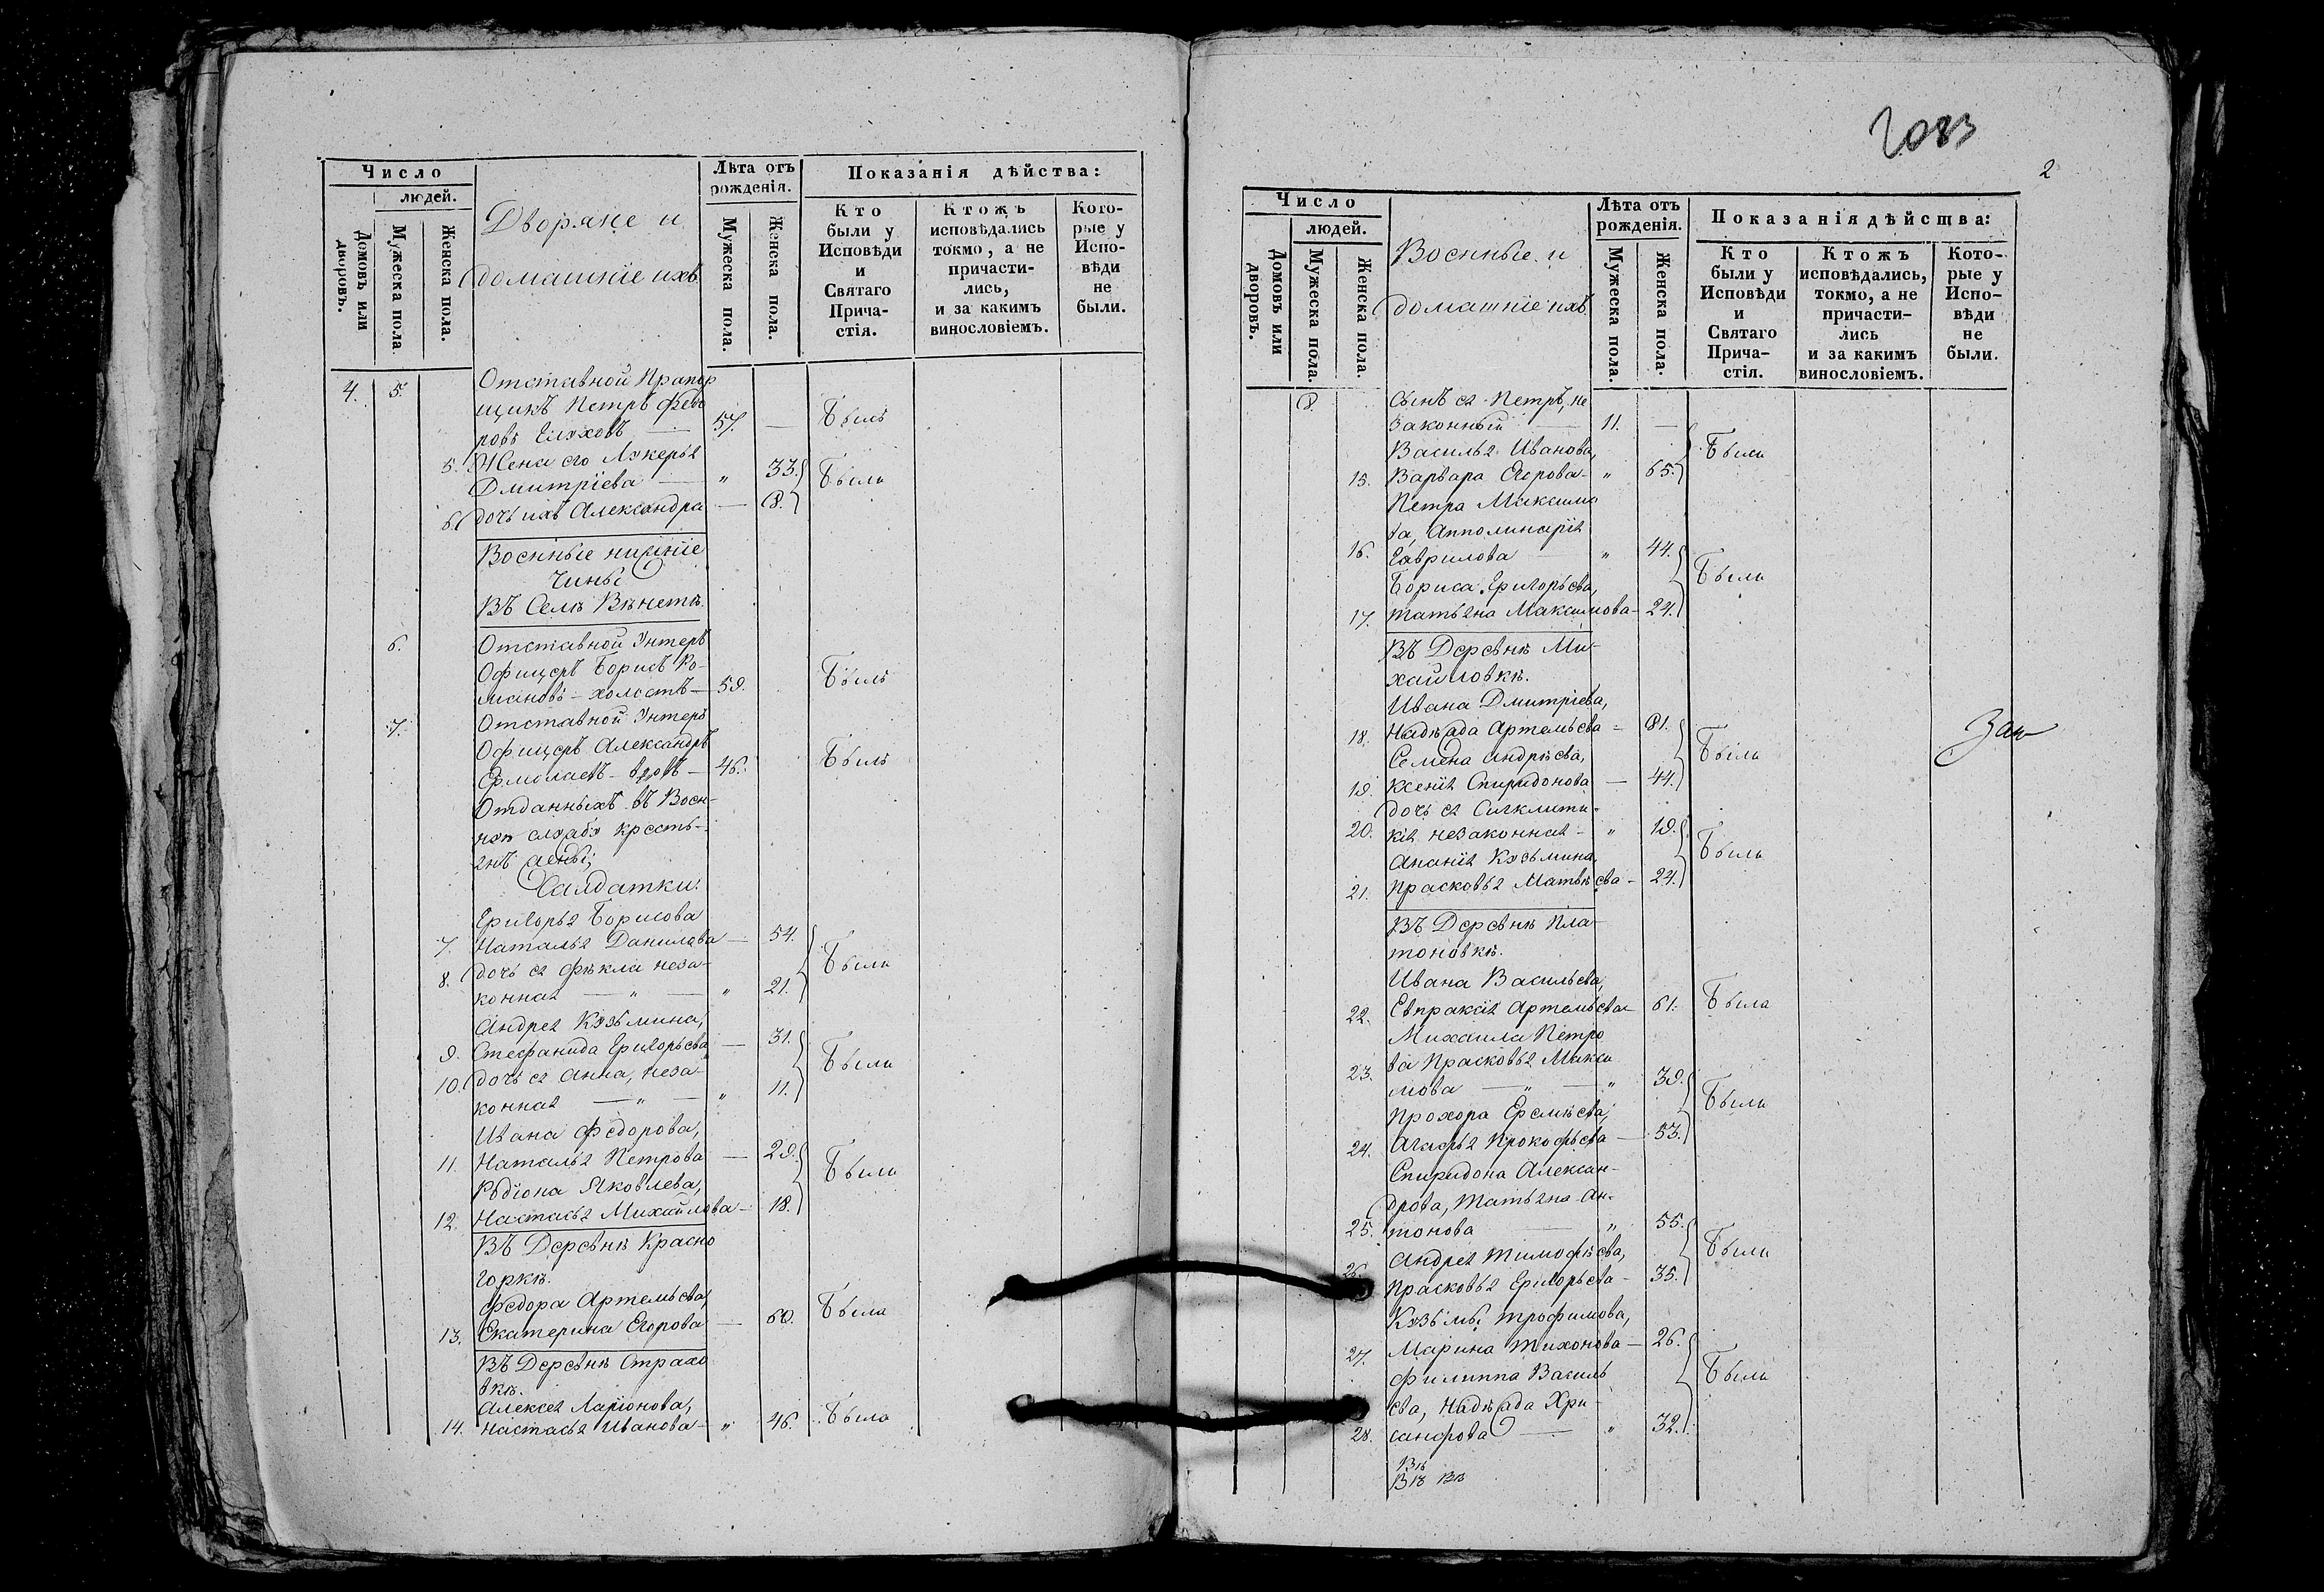 Число
людей.
Домовъ или дворовъ.
Мужеска пола.
Женска пола.
Дворяне и
домашніе ихъ
Лѣта отъ рожденія.
Мужеска пола.
Женска пола.
Показанія дѣйства:
Кто были у Исповѣди и Святаго Прича-стія.
Ктожъ исповѣдались токмо, а не причасти-лись, и за какимъ винословіемъ.
Кото-рые у Испо-вѣди не были.
4. 5. Отставной Прапор
щикъ Петръ Федо
ровъ Глуховъ — 57. — Былъ
5. Жена его Лукерья
Дмитріева — „ 33. Были
6. дочь ихъ Александра — 8.
Военные нижніе
чины
Въ Селѣ
6. Отставной Унтеръ
Офицеръ Борисъ Ро-
мановъ – холостъ — 59. Былъ
7. Отставной Унтеръ
Офицеръ Александръ
Ермолаевъ – вдовъ — 46. Былъ
Отданныхъ въ Воен-
ную службу кресть-
янъ жены;
Салдатки:
Григорья Борисова
7. Наталья Данилова — 54. Были
8. дочь ея Фѣкла неза-
конная — „ — „ 21.
Андрея Кузьмина,
9. Стефанида Григорьева — 31. Были
10. дочь ея Анна, неза-
конная — „ — „ 11.
Ивана Федорова,
11. Наталья Петрова — 29. Были
Родіона Яковлева,
12. Настасья Михайлова — 18.
Въ Деревнѣ Красно
горкѣ.
Федора Артемьева,
13. Екатерина Егорова — 60. Была
Въ Деревнѣ Страхо
вкѣ.
Алексея Ларіонова,
14. Настасья Иванова — „ 46. Была
2083
2
Число
людей.
Домовъ или дворовъ.
Мужеска пола.
Женска пола.
Военные и
домашніе ихъ
Лѣта отъ рожденія.
Мужеска пола.
Женска пола.
Показанія дѣйства:
Кто были у Исповѣди и Святаго Прича-стія.
Ктожъ исповѣдались, токмо, а не причасти-лись и за какимъ винословіемъ.
Кото-рые у Испо-вѣди не были.
8. Сынъ ея Петръ, не
законный — 11. — Были
Василья Иванова,
15. Варвара Егорова – „ 65.
Петра Максимо
ва, Апполинарія
16. Гаврилова — „ 44. Были
Бориса Григорьева,
17. Татьяна Максимова – 24.
Въ Деревнѣ Ми-
хайловкѣ.
Ивана Дмитріева,
18. Надѣжда Артемьева – 81. Были
Семена Андрѣева,
19. Ксенія Спиридонова — 44.
дочь ея Сигклити-
20. кія незаконная – „ 19. Были
Ананія Кузьмина,
21. Прасковья Матвѣева – 24.
Въ Деревнѣ Пла-
тоновкѣ.
Ивана Васильева,
22. Евпраксія Артемьева 61. Была
Михаила Петро
23. ва Прасковья Макси
мова — „ — „ 39. Были
Прохора Еремѣева,
24. Агафья Прокофьева — 53.
Спиридона Алексан-
дрова, Татьяна Ан-
25. тонова — „ 55. Были
Андрея Тимофѣева,
26. Прасковья Григорьева – 35.
Кузьмы Трофимова,
27. Марина Тихонова – 26. Были
Филиппа Василь
ева, Надѣжда Хри-
28. санфова — „ 32.